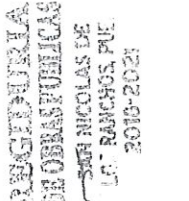 REGIDURIA
DE OBRAS PUBLICAS
SAN NICOLAS DE
LOS RANCHOS, PUE.
2018-2021